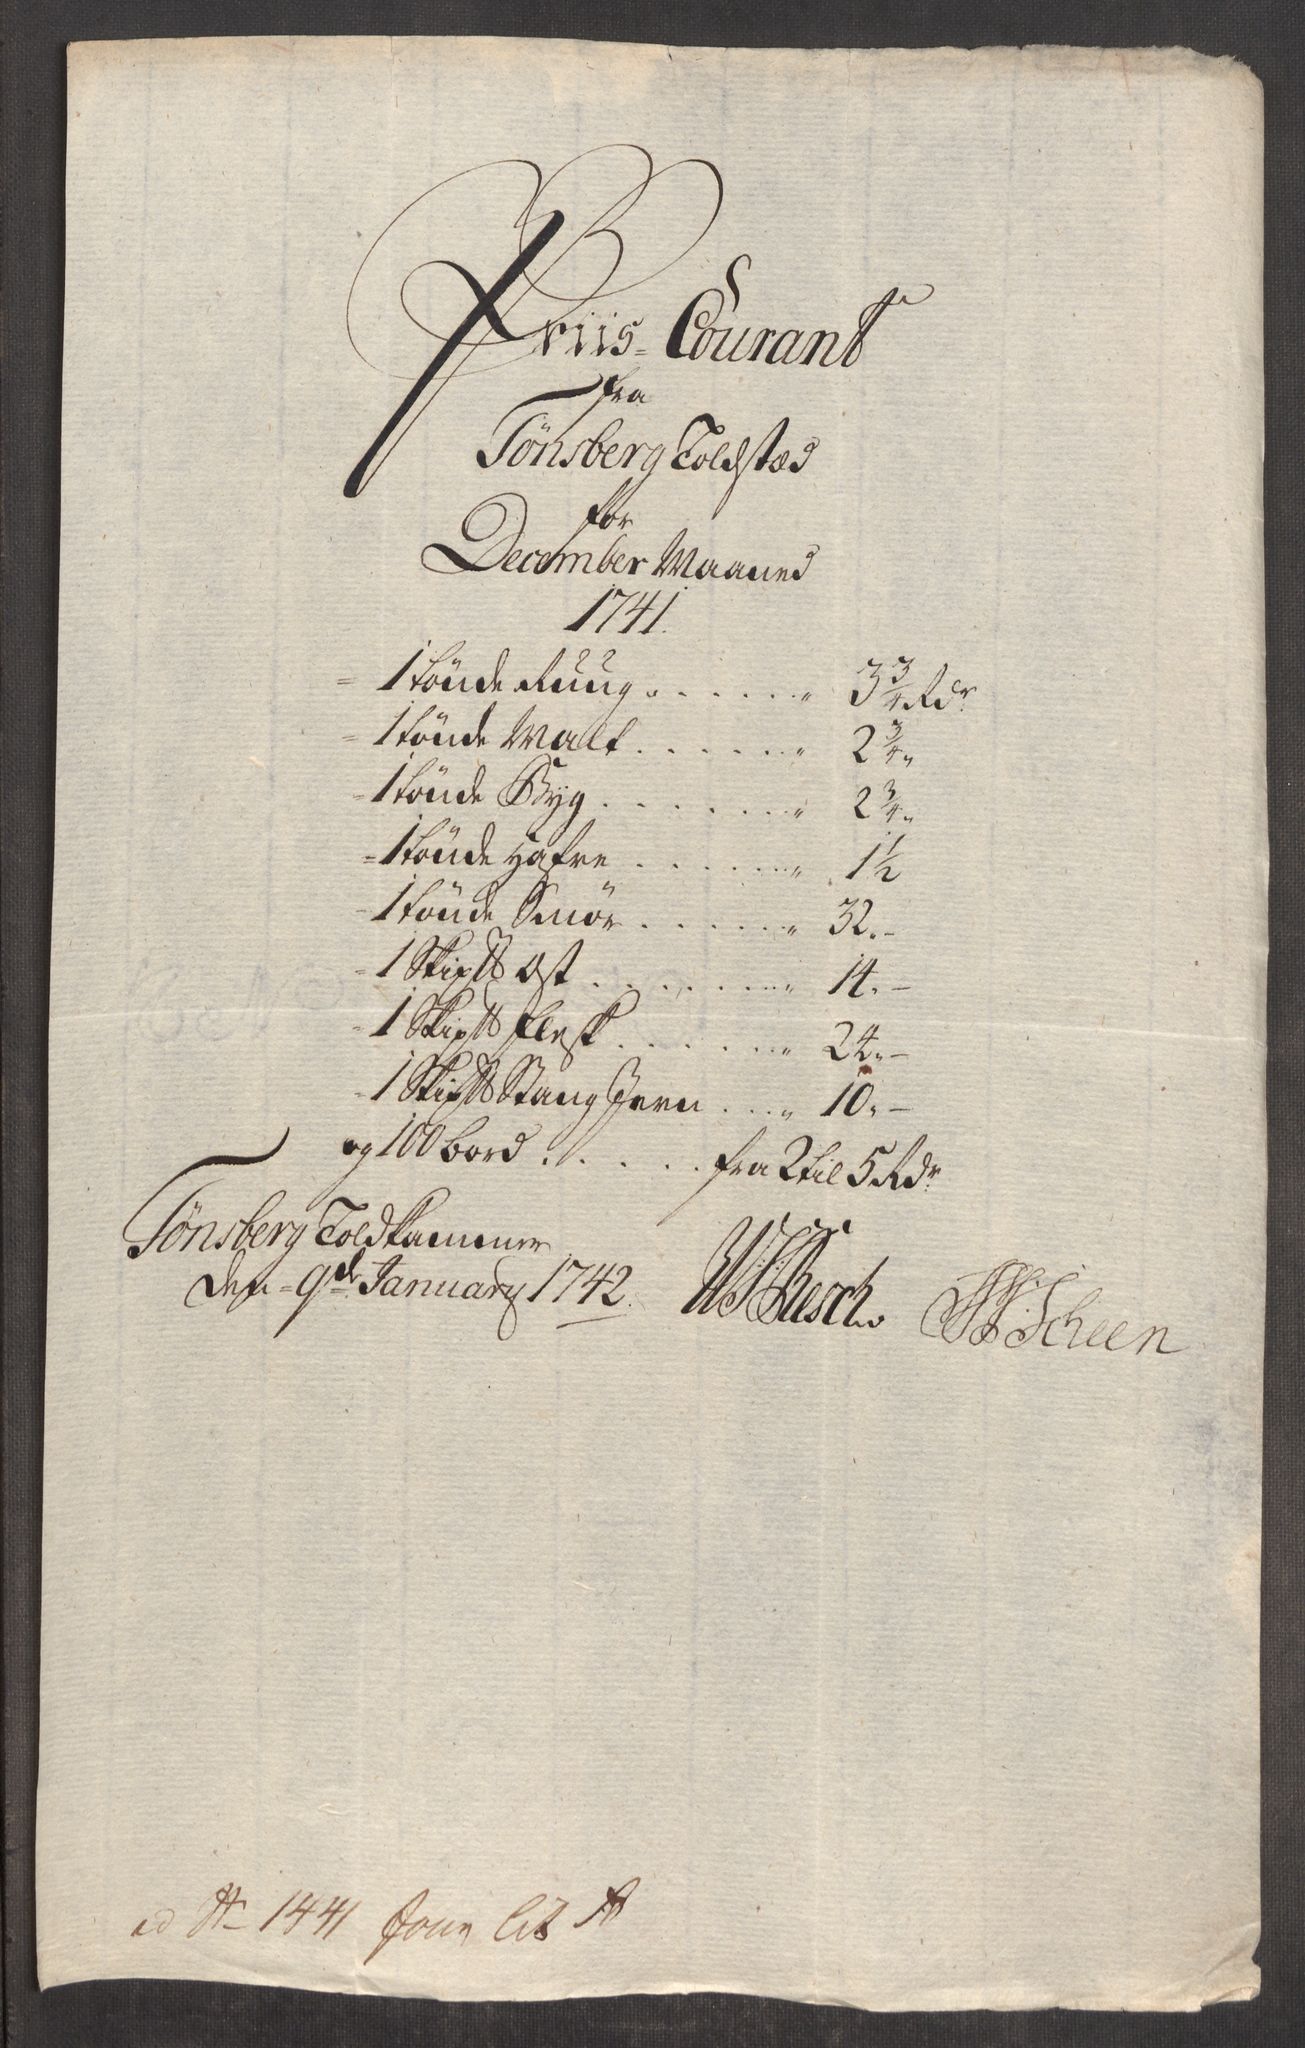 Priis-Courant
fra
Tønsberg Toldstæd
for
December Maaned
1741.
1 tønde Ruug . . . . . . 3 3/4 Rdr
1 tønde Malt . . . . . . 2 3/4 "
1 tønde Byg . . . . . . 2 3/4 "
1 tønde Hafre . . . . . . 1 1/2
1 tønde Smør . . . . . . 32.-
1 Skip℔ Ost . . . . . . 14.-
1 Skip℔ Flesk . . . . . . 24.-
1 Skip℔ Stang Jern . . . 10.-
og 100 bord . . . . . fra 2 til 5 Rdr
Tønsberg Toldkammer
den 9de January 1742.
Scheen
ad N 1441 Jour Lit A